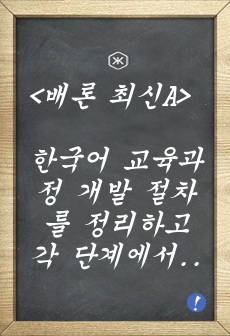 <배론 최신A>
한국어 교육과
정 개발 절차
를 정리하고
각 단계에서..